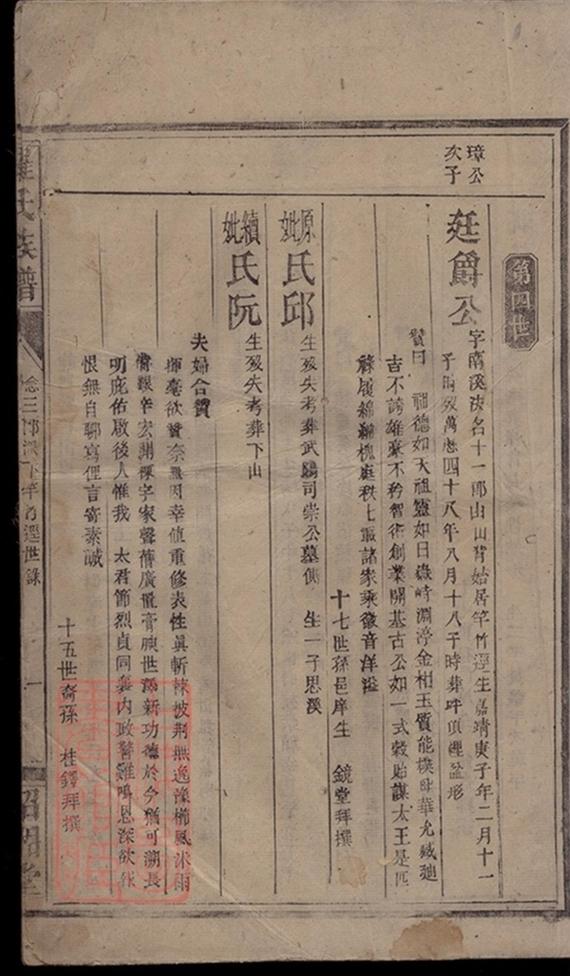 第四世
璋公
次子
廷爵公
字南溪法名十一郎由山背始居竿竹逕生嘉靖庚子年二月十一
子時歿萬歷四十八年八月十八子時葬坪頂裡盆形
贊曰 祖德如天祖靈如日嶽峙淵渟金相玉質能樸毋華允臧迪
吉不誇雄豪不矜智術創業開基古公如一式穀貽謀太王是匹
綿綿槐庭秩七重諸家乘徽音洋溢
十七世孫邑庠生 鏡堂拜撰
原妣
氏邱
生歿失考葬武陽司崇公墓側 生一子思溪
續妣
氏阮
生歿失考葬下山
夫婦合贊
揮毫欲贊奈無因幸值重修表性真斬棘披荊無逸豫櫛風沐雨
辛宏開棟宇家聲舊廣置膏腴世澤新功德於今猶可溯長
明庇佑啟後人惟我 太君節烈貞同襄內政警雞鳴恩深欲報
恨無自聊寫俚言寄素誠
十五世裔孫 桂鐸拜撰
氏族譜
三郎
世錄
一